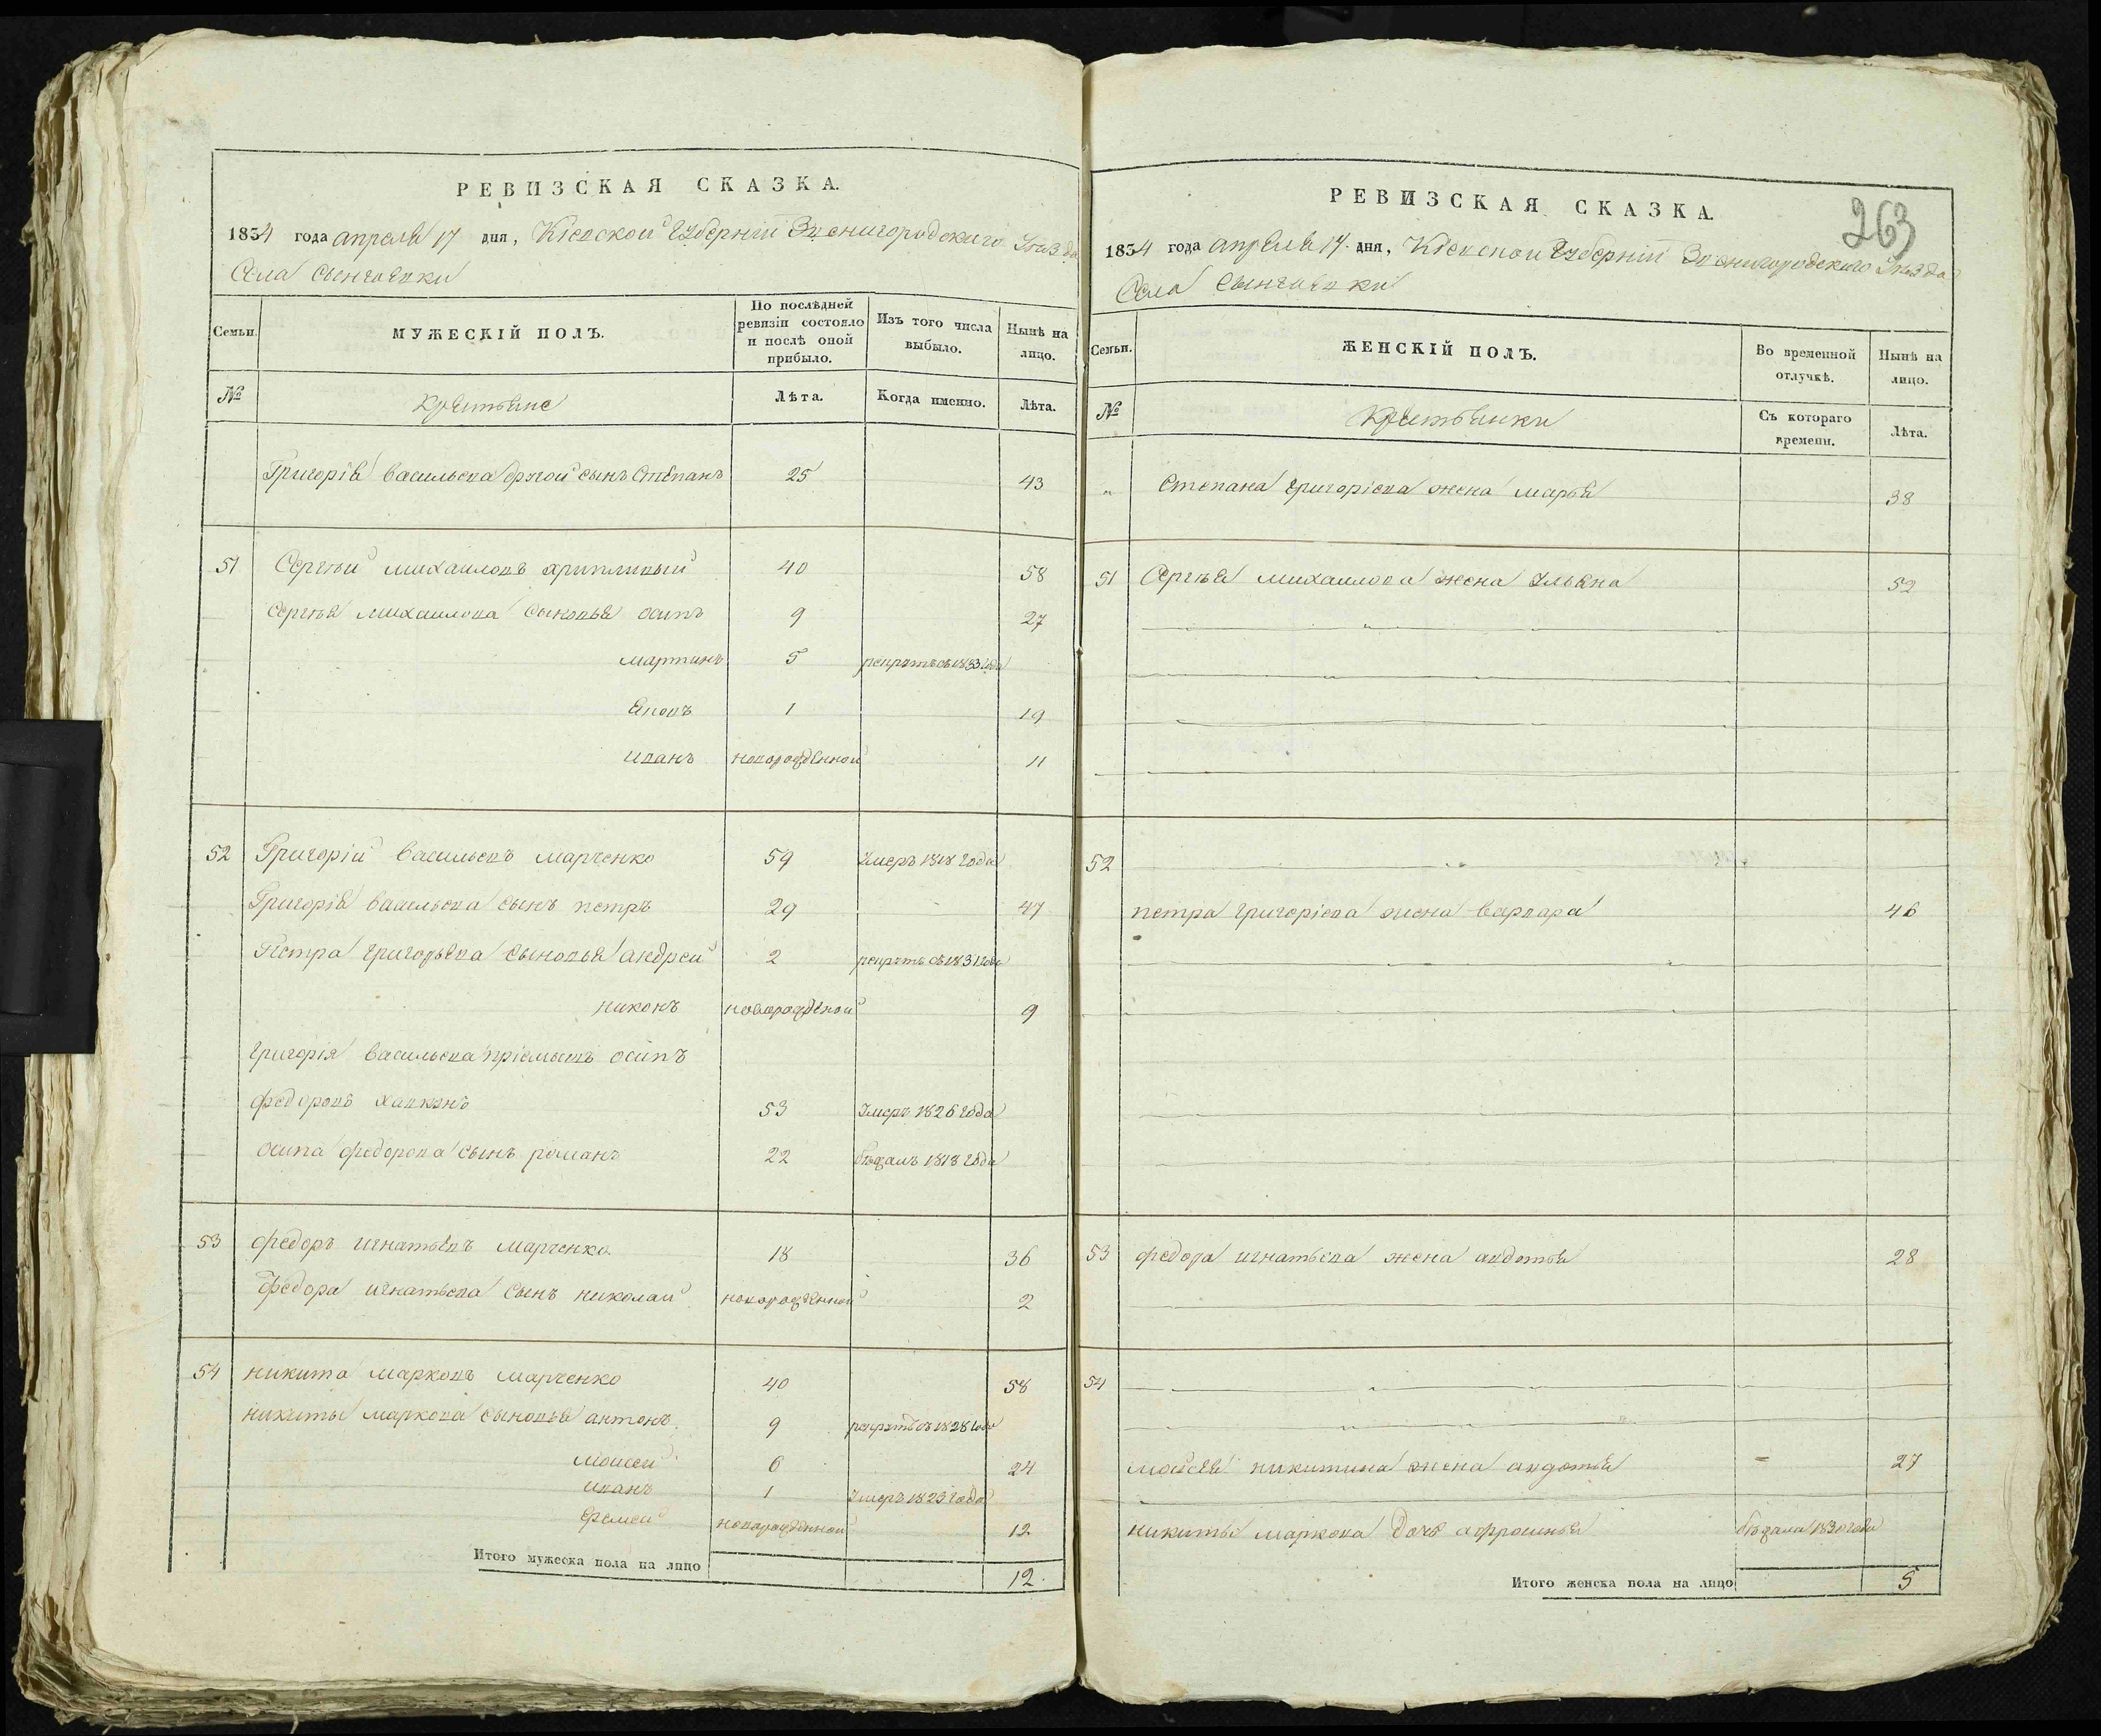 РЕВИЗСКАЯ СКАЗКА.
1834 года апреля 17 дня, Кіевской Губерніи Звенигородскаго Уѣзда
Села
Семьи. МУЖЕСКІЙ ПОЛЪ. По послѣдней ревизіи состояло и послѣ оной прибыло. Изъ того числа выбыло. Нынѣ на лицо.
№ Крестьяне Лѣта. Когда именно. Лѣта.
Григорія Васильева другой сынъ Степанъ 25 43
51 Сергѣй Михайловъ 40 58
Сергѣя Михайлова сыновья осипъ 9 27
мартинъ 5 рекрутъ съ 1833 года
яковъ 1 19
иванъ новорожденной 11
52 Григорій Васильевъ Марченко 59 Умеръ 1818 года
Григорія Васильева сынъ петръ 29 47
Петра Григорьева сыновья андрей 2 рекрутъ съ 1831 года
никонъ новорожденой 9
Григорія Васильева пріемышъ осипъ
федоровъ 53 Умеръ 1826 года
осипа федорова сынъ романъ 22 бѣжалъ 1818 года
53 федоръ игнатьевъ марченко 18 36
федора игнатьева сынъ николай новорожденной 2
54 никита марковъ марченко 40 58
никиты маркова сыновья антонъ 9 рекрутъ съ 1828 года
моисей 6 24
иванъ 1 Умеръ 1825 года
еремей новорожденной 12
Итого мужеска пола на лицо 12.
РЕВИЗСКАЯ СКАЗКА.
263
1834 года апреля 17. дня, Кіевской Губерніи Звенигородскаго Уѣзда
Села
Семьи. ЖЕНСКІЙ ПОЛЪ. Во временной отлучкѣ. Нынѣ на лицо.
№ Крестьянки Съ котораго времени. Лѣта.
" Степана Григоріева жена марья 38
51 Сергѣя Михайлова жена Ульяна 52
52
петра григоріева жена варвара 46
53 федора игнатьева жена авдотья 28
54
моисея никитина жена авдотья - 27
никиты маркова дочь афросинья бѣжала 1830 года
Итого женска пола на лицо 5